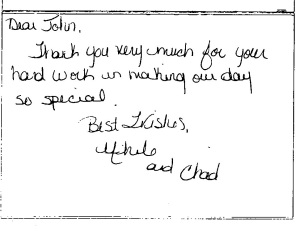 Dear John,
Thank you very much for your
hard work in making our day
so special.
Best Wishes,
Michele
and Chad